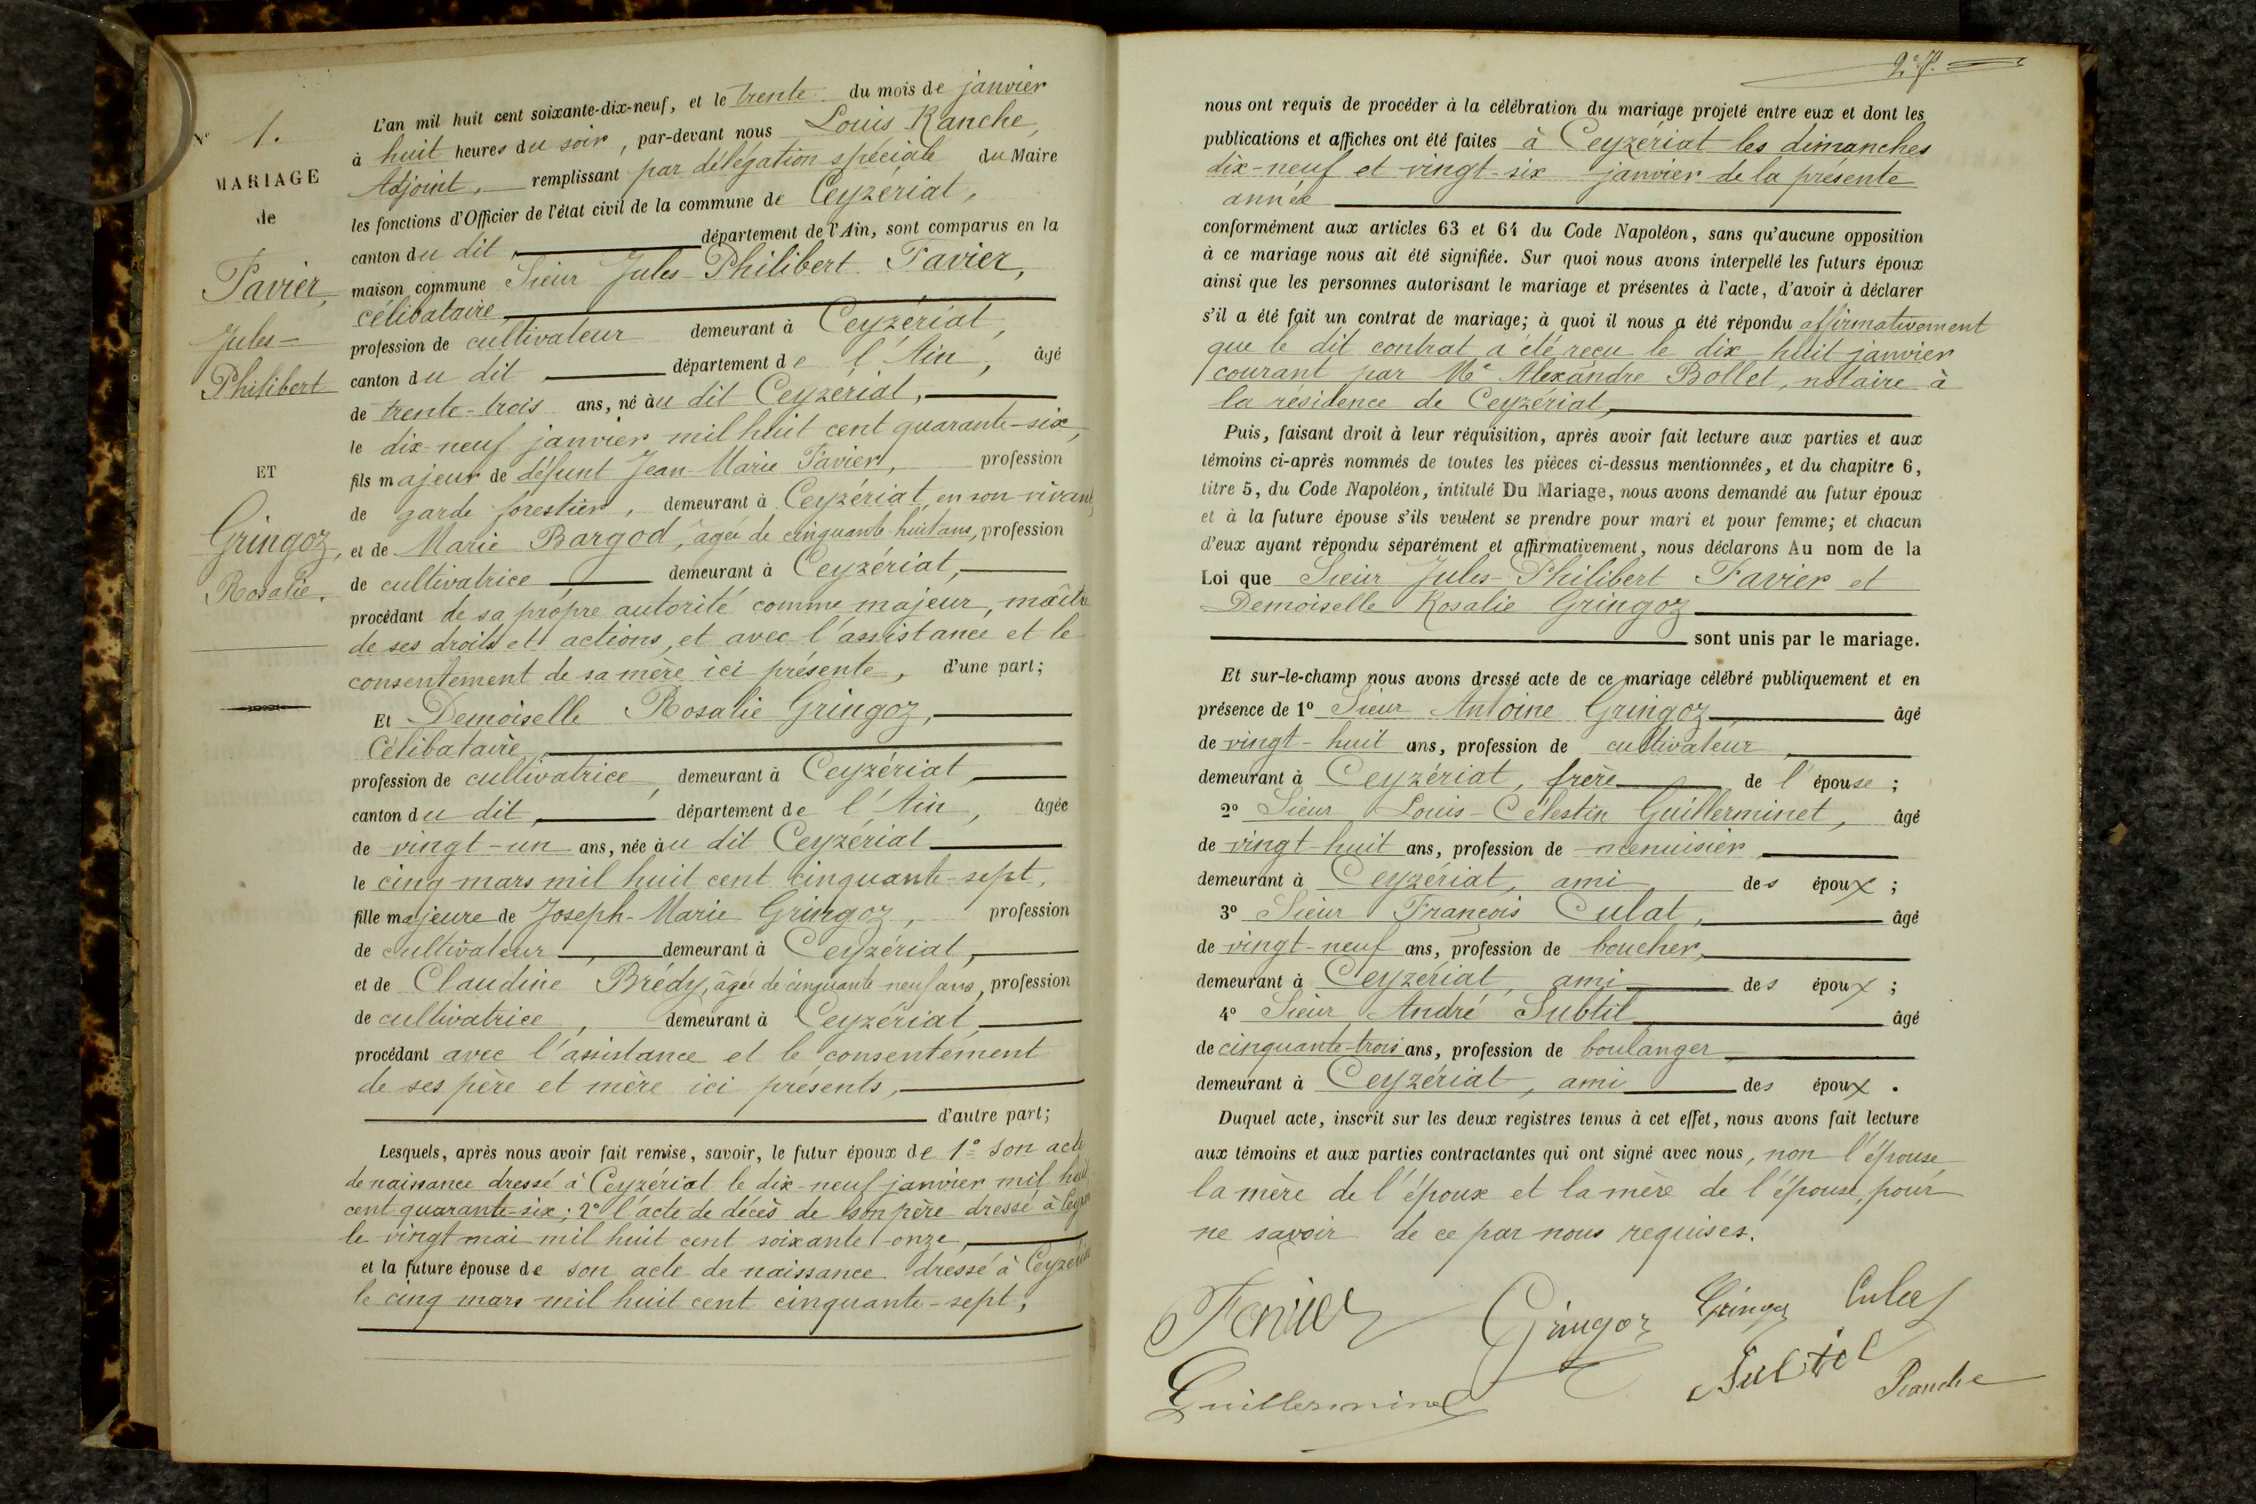 N° 1.
MARIAGE
de
Favier,
Jules-
Philibert
ET
Gringoz,
Rosalie.
L'an mil huit cent soixante-dix-neuf, et le trente du mois de janvier
à huit heures du soir, par-devant nous Louis Ranche,
Adjoint, remplissant par délégation spéciale du Maire
les fonctions d'Officier de l'état civil de la commune de Ceyzériat,
canton du dit département de l'Ain, sont comparus en la
maison commune Sieur Jules-Philibert Favier,
célibataire,
profession de cultivateur demeurant à Ceyzériat,
canton du dit département de l'Ain, âgé
de trente-trois ans, né au dit Ceyzériat,
le dix-neuf janvier mil huit cent quarante-six,
fils majeur de défunt Jean-Marie Favier, profession
de garde forestier, demeurant à Ceyzériat, en son vivant,
et de Marie Bargod, âgée de cinquante huit ans, profession
de cultivatrice demeurant à Ceyzériat,
procédant de sa propre autorité comme majeur, maître
de ses droits et actions, et avec l'assistance et le
consentement de sa mère ici présente, d'une part;
Et Demoiselle Rosalie Gringoz,
Célibataire,
profession de cultivatrice, demeurant à Ceyzériat,
canton du dit, département de l'Ain, âgée
de vingt-un ans, née au dit Ceyzériat
le cinq mars mil huit cent cinquante-sept,
fille majeure de Joseph-Marie Gringoz, profession
de cultivateur, demeurant à Ceyzériat,
et de Claudine Brédy, âgée de cinquante neuf ans, profession
de cultivatrice, demeurant à Ceyzériat,
procédant avec l'assistance et le consentement
de ses père et mère ici présents,
d'autre part;
Lesquels, après nous avoir fait remise, savoir, le futur époux de 1° son acte
de naissance dressé à Ceyzériat le dix-neuf janvier mil huit
cent quarante-six; 2° l'acte de décès de son père dressé à
le vingt mai mil huit cent soixante-onze,
et la future épouse de son acte de naissance dressé à Ceyzériat
le cinq mars mil huit cent cinquante-sept,
nous ont requis de procéder à la célébration du mariage projeté entre eux et dont les
publications et affiches ont été faites à Ceyzériat les dimanches
dix-neuf et vingt-six janvier de la présente
année
conformément aux articles 63 et 64 du Code Napoléon, sans qu'aucune opposition
à ce mariage nous ait été signifiée. Sur quoi nous avons interpellé les futurs époux
ainsi que les personnes autorisant le mariage et présentes à l'acte, d'avoir à déclarer
s'il a été fait un contrat de mariage; à quoi il nous a été répondu affirmativement
que le dit contrat a été reçu le dix huit janvier
courant par Me Alexandre Bollet, notaire à
la résidence de Ceyzériat,
Puis, faisant droit à leur réquisition, après avoir fait lecture aux parties et aux
témoins ci-après nommés de toutes les pièces ci-dessus mentionnées, et du chapitre 6,
titre 5, du Code Napoléon, intitulé Du Mariage, nous avons demandé au futur époux
et à la future épouse s'ils veulent se prendre pour mari et pour femme; et chacun
d'eux ayant répondu séparément et affirmativement, nous déclarons Au nom de la
Loi que Sieur Jules-Philibert Favier et
Demoiselle Rosalie Gringoz
sont unis par le mariage.
Et sur-le-champ nous avons dressé acte de ce mariage célébré publiquement et en
présence de 1° Sieur Antoine Gringoz, âgé
de vingt-huit ans, profession de cultivateur
demeurant à Ceyzériat, frère de l'épouse;
2° Sieur Louis-Célestin Guillerminet, âgé
de vingt-huit ans, profession de menuisier,
demeurant à Ceyzériat, ami des époux;
3° Sieur François Culat, âgé
de vingt-neuf ans, profession de boucher,
demeurant à Ceyzériat, ami des époux;
4° Sieur André Subtil âgé
de cinquante-trois ans, profession de boulanger
demeurant à Ceyzériat, ami des époux.
Duquel acte, inscrit sur les deux registres tenus à cet effet, nous avons fait lecture
aux témoins et aux parties contractantes qui ont signé avec nous, non l'épouse,
la mère de l'époux et la mère de l'épouse, pour
ne savoir de ce par nous requises.
Favier Gringoz Gringoz Culat
Guillerminet Subtil Ranche